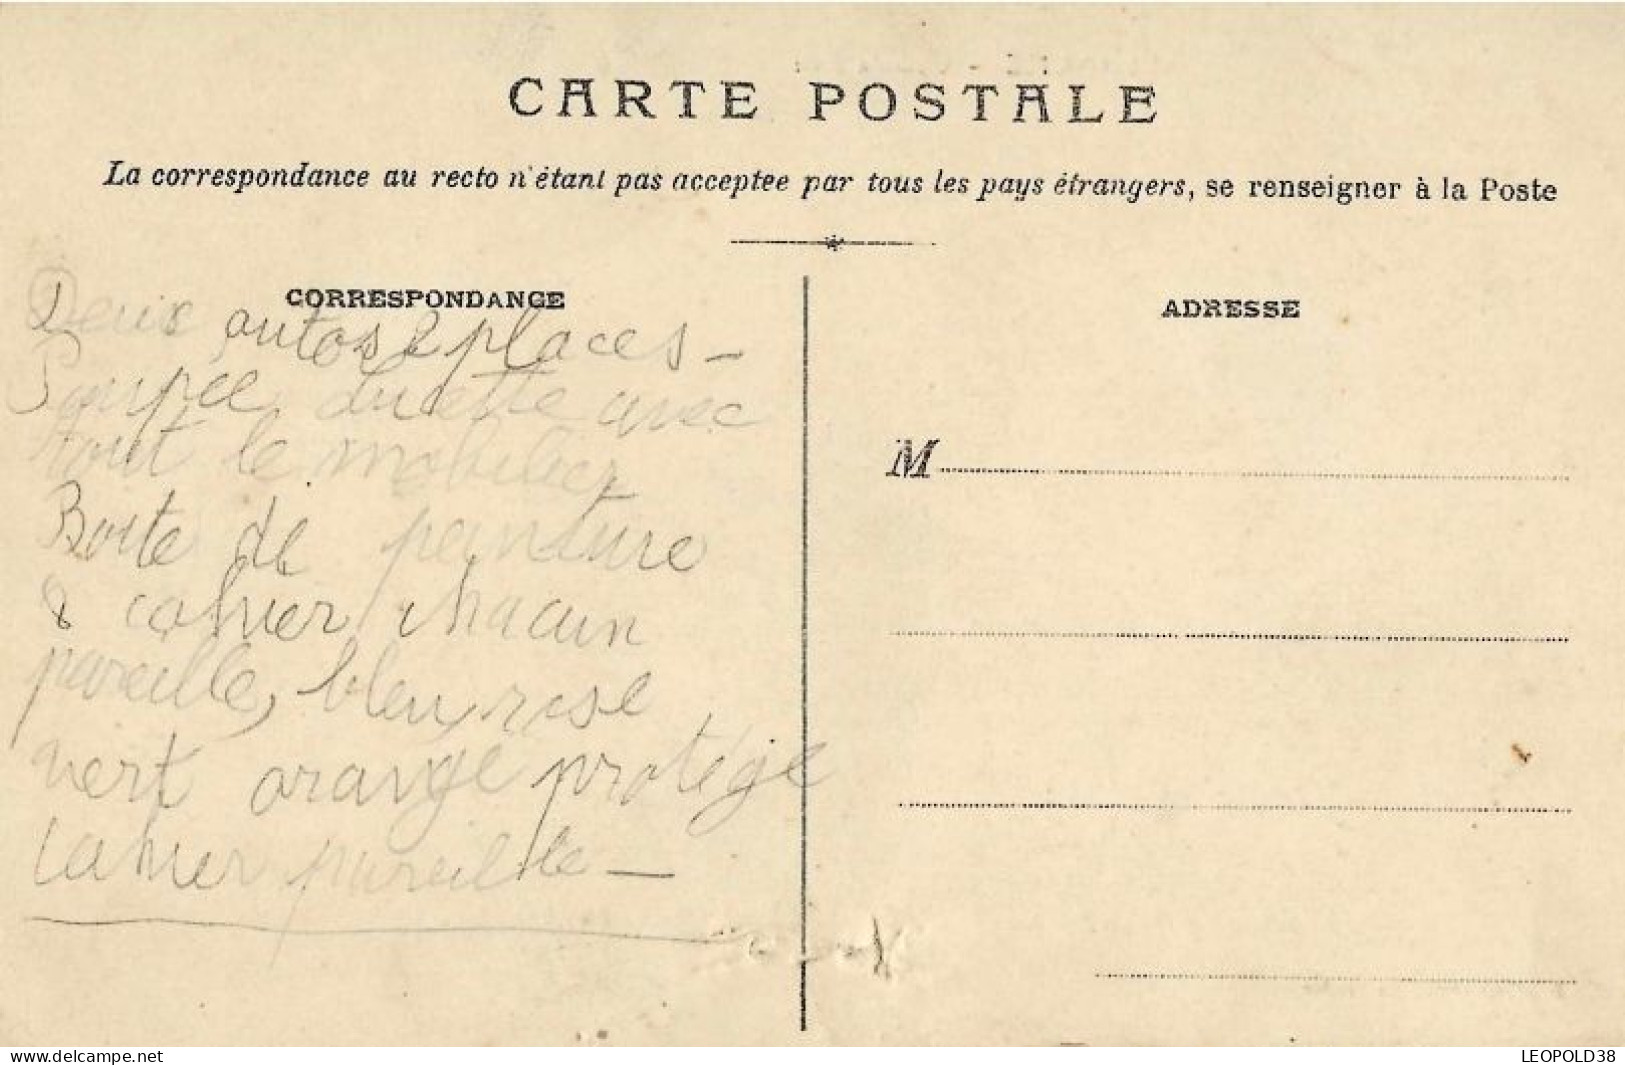 CARTE POSTALE
La correspondance au recto n'étant pas acceptee par tous les pays étrangers, se renseigner à la Poste
CORRESPONDANCE
Deux autos 2 places -
Poupée Lucette avec
tout le mobilier
Boite de peinture
& cahier chacun
pareille, bleu, rose
vert orange protége
cahier pareille -
ADRESSE
M
www.delcampe.net
LEOPOLD38